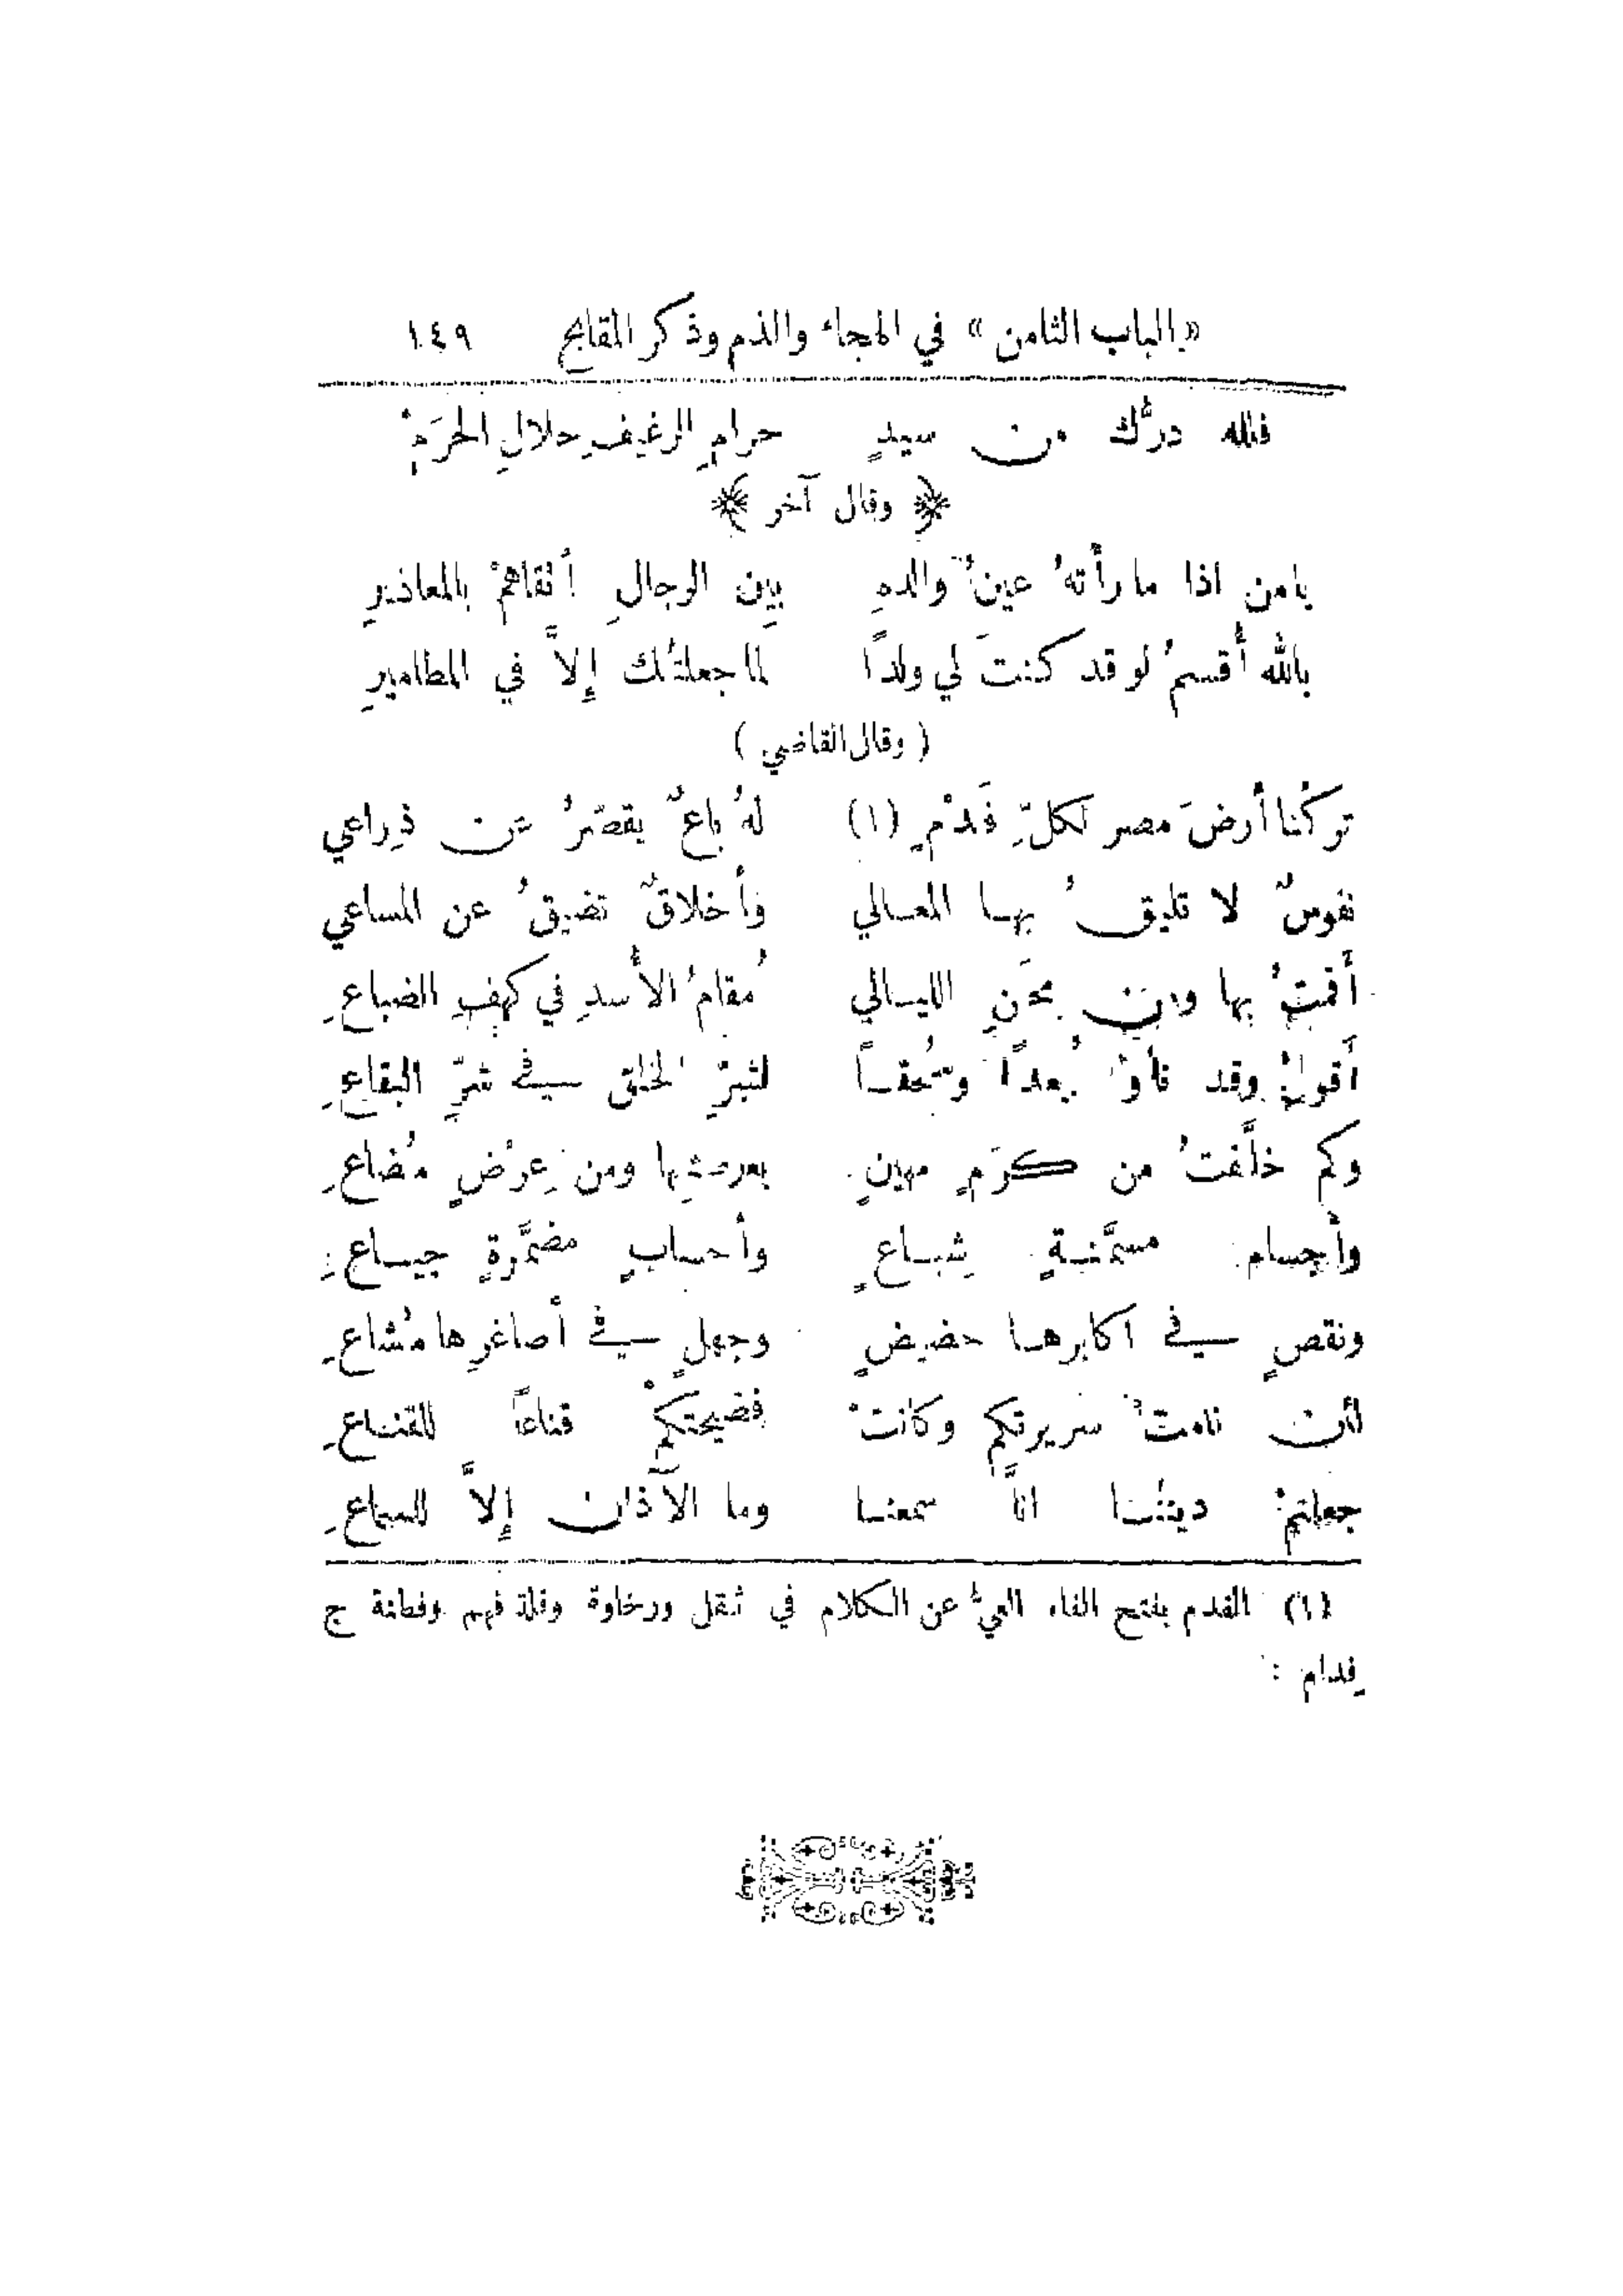 «الباب الثامن» في الهجاء والذم وذكر المقابح ١٤٩
فلله درُّك من سيدٍ حرامِ الرغيفِ حلالِ الحرَمْ
﴿ وقال آخر ﴾
يامن اذا ما رأتهُ عينُ والدهِ بين الرجالِ أتقاهمْ بالمعاذيرِ
بالله أُقسمُ لو قد كنتَ لي ولداً لما جعلتُك إلاَّ في المطاميرِ
( وقال القاضي )
تركْنا أرضَ مصر لكلِّ فَدْمٍ (١) لهُ باعٌ يقصّرُ عن ذِراعي
نفوسٌ لا تليقُ بها المعالي وأخلاقٌ تضيقُ عن المساعي
أقمتُ بها ومن محَنِ الليالي مُقامُ الأُسدِ في كهفِ الضباعِ
أَقولُ وقد نأوْا بُعداً وسُحقاً لشرِّ الخلق في شرِّ البقاعِ
وكم خلَّفتُ من كرَمٍ مهينٍ بعرصتِها ومن عِرْضٍ مُضاعِ
وأجسام مسمَّنةٍ شِباعٍ وأحسابٍ مضمَّرةٍ جياعِ
ونقصٍ في اكابرها حضيضٍ وجهلٍ في أصاغرِها مُشاعِ
لئن نامتْ سريرتكم وكانتْ فضيحتكمْ قناعاً للقناعِ
جعلتمْ ديننا انَّا سمعنا وما الآذان إلاَّ للسماعِ
(١) الفدم بفتح الفاء العيُّ عن الكلام في ثقل ورخاوة وقلة فهم وفطنة ج
فِدام :